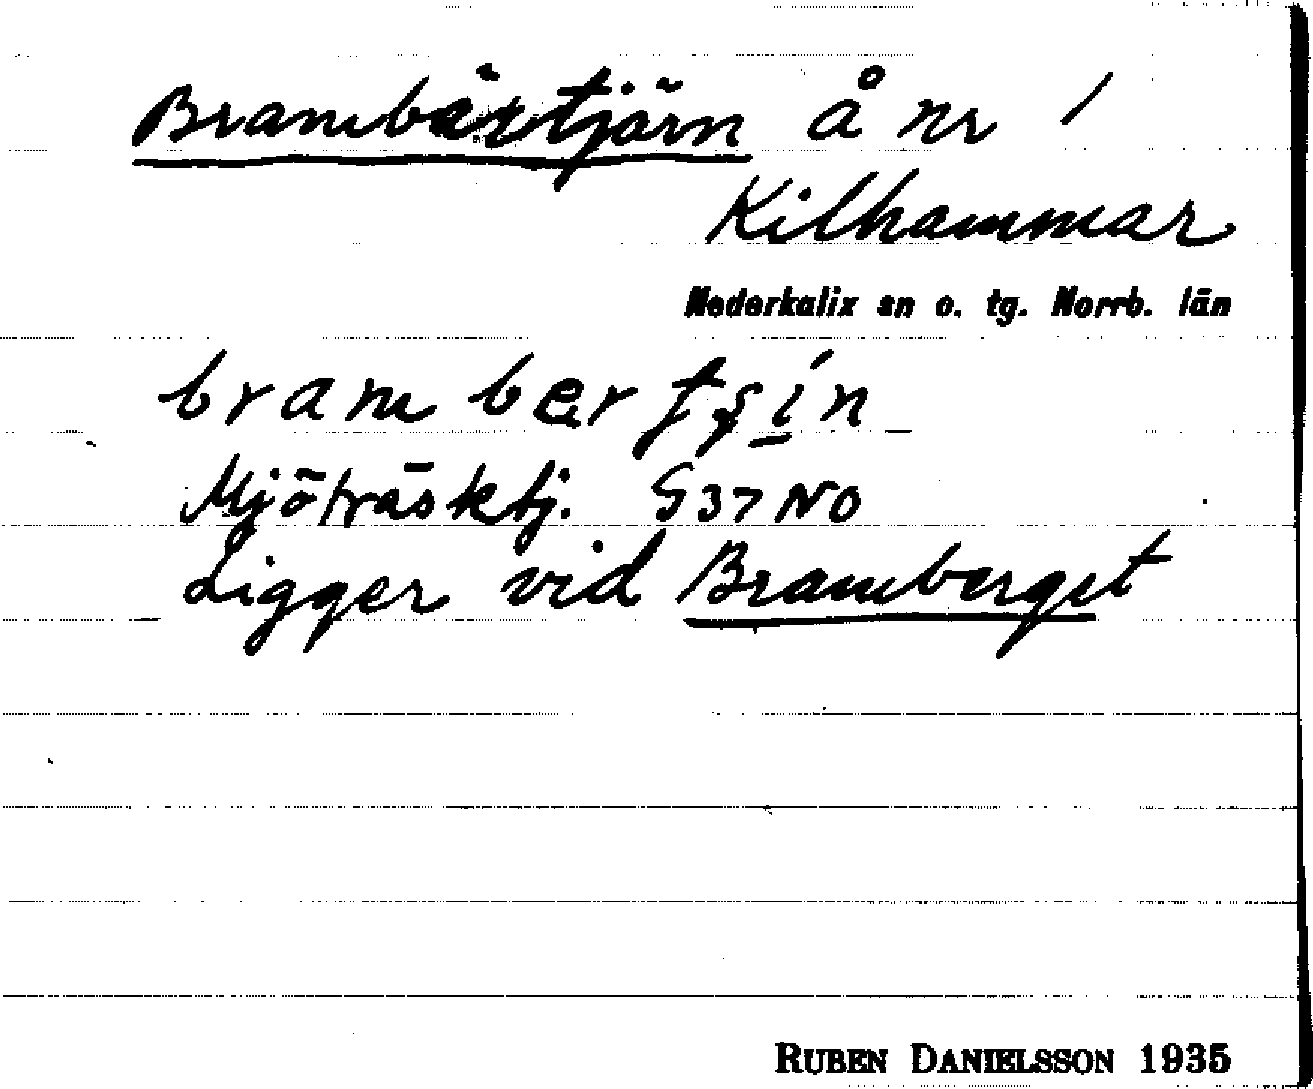 Brambärtjärn å nr 1
Kilhammar
Nederkalix sn o. tg. Norrb. län
bram bær tʂin
Mjöträsktj. S37NO
Ligger vid Bramberget
RUBEN DANIELSSON 1935